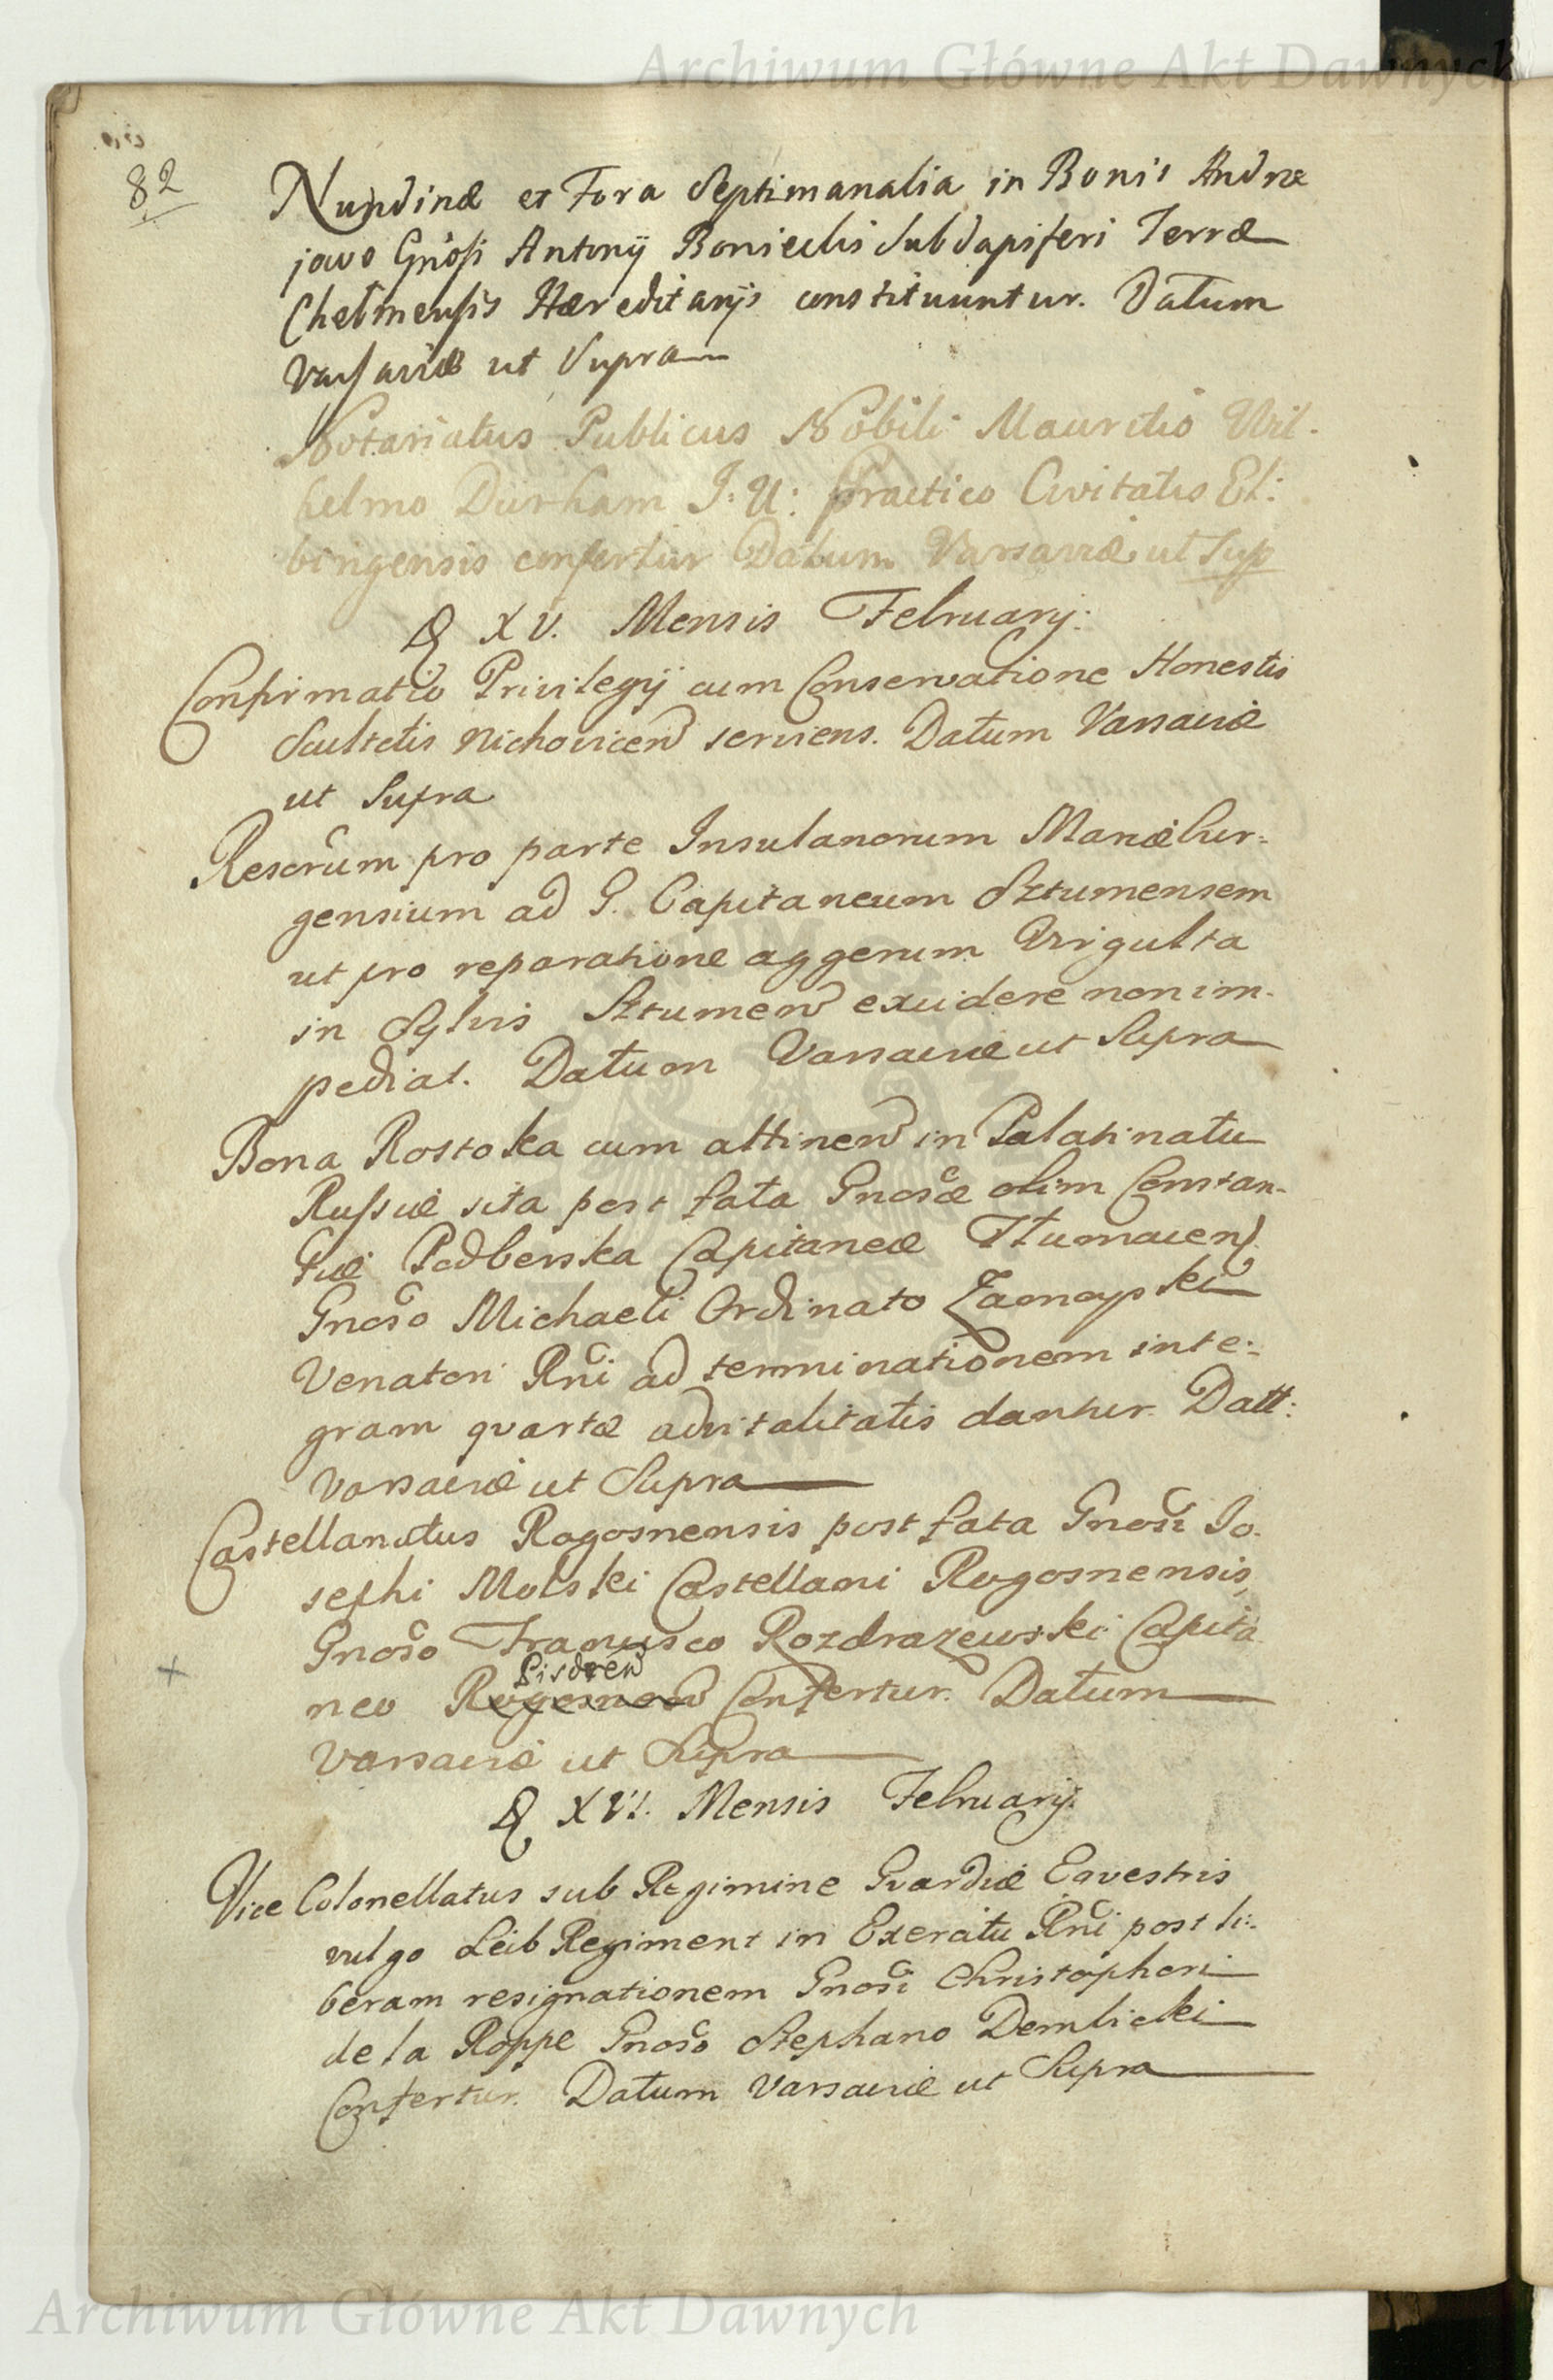 Archiwum Główne Akt Dawnych
82
Nundinæ et Fora Septimanalia in Bonis Andrze
jowo Gnosi Antonij Boniecki Subdapiferi Terræ
Chelmensis Hæreditarijs constituuntur. Datum
Varsaviæ ut Supra
Notariatus Publicus Nobili Mauritio Wil-
helmo Durham J: U: Practico Civitatis El:
bingensis confertur Datum Varsaviæ ut Sup
D XV. Mensis Februarij:
Confirmatio Privilegij cum Conservatione Honestis
Scultetis Nichovicen serviens. Datum Varsaviæ
ut Supra
Rescrum pro parte Insulanorum Mariæbur-
gensium ad G. Capitaneum Sztumensem
ut pro reparatione aggerum Virgulta
in Sylvis Sztumen excidere non im-
pediat. Datum Varsaviæ ut Supra
Bona Rostoka cum attinen in Palatinatu
Russiæ sita post fata Gnosæ olim Constan-
tiæ Podberska Capitaneæ Tłumacen
Gnoso Michaeli Ordinato Zamoyski
Venatori Rni ad terminationem inte-
gram quartæ advitalitatis dantur. Datt:
Varsaviæ ut Supra
Castellanatus Rogosnensis post fata Gnosi Jo-
sephi Molski Castellani Rogosnensis,
Gnoso Francisco Rozdrazewski Capita
Pisdren
neo Rogosnen Confertur. Datum
Varsaviæ ut Supra
D XVI. Mensis Februarij.
Vice Colonellatus sub Regimine Gvardiæ Eqvestris
vulgo Leib Regiment in Exercitu Rni post li-
beram resignationem Gnosi Christophori
de la Roppe Gnoso Stephano Dembicki
Confertur. Datum Varsaviæ ut Supra
Archiwum Główne Akt Dawnych